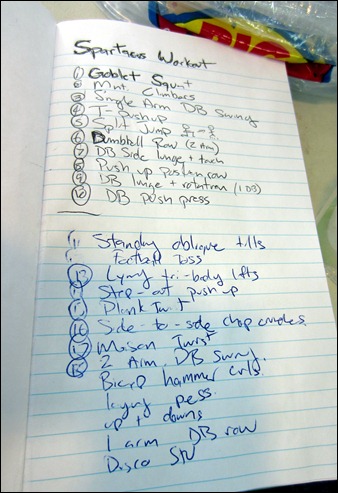 BIG
Spartacus Workout
① Goblet Squat
② Mnt. Climbers
③ Single Arm DB Swing
④ T-Pushup
⑤ Split Jump
⑥ Dumbbell Row (2 Arm)
⑦ DB Side lunge + touch
⑧ Push up position row
⑨ DB lunge + rotation (1 DB)
⑩ DB push press
11 Standing oblique
Football toss
Lying tri-body lifts
Step-out push-up
Plank Twist
⑯ Side-to-side chop
⑰ Mason Twist
2 Arm DB Swing.
Bicep hammer curls.
lying press.
up + downs
1 arm DB row
Disco